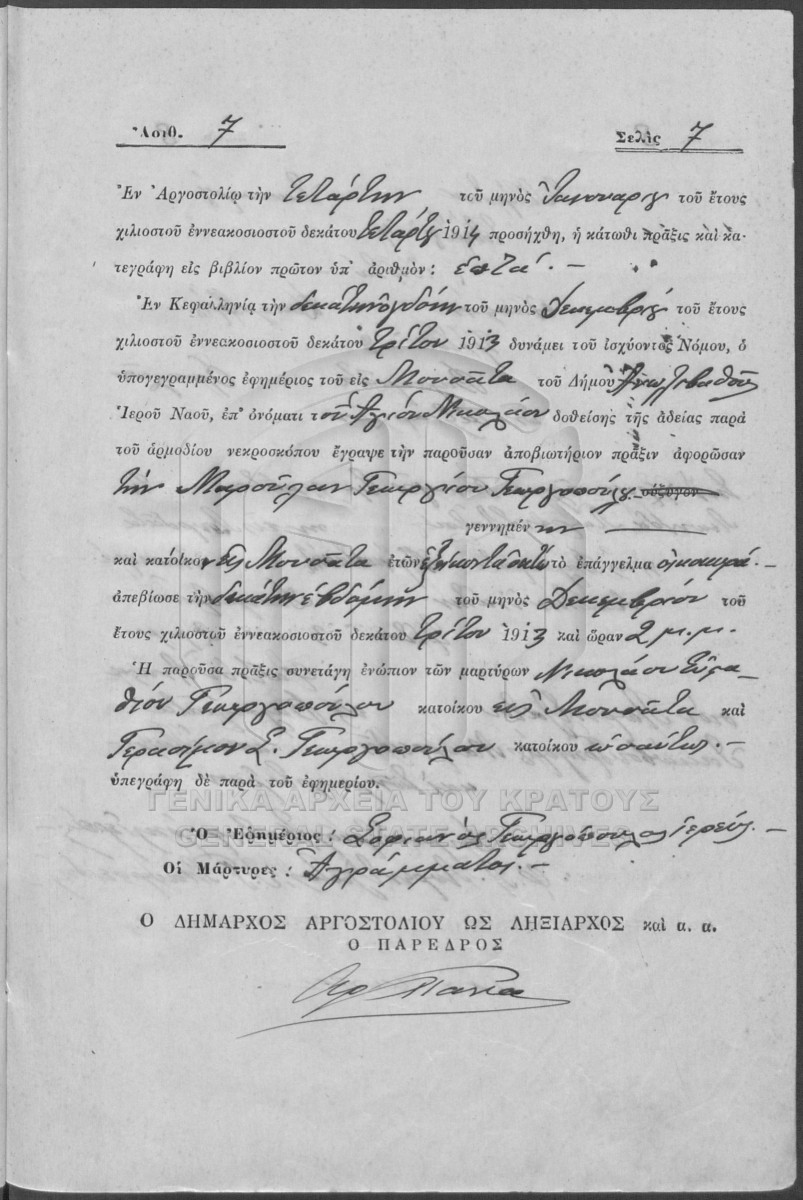 Ἀριθ. 7 Σελὶς 7
Ἐν Ἀργοστολίῳ τὴν τετάρτην τοῦ μηνὸς Ἰανουαρίου τοῦ ἔτους
χιλιοστοῦ ἐννεακοσιοστοῦ δεκάτου τετάρτου 1914 προσήχθη, ἡ κάτωθι πρᾶξις καὶ κα-
τεγράφη εἰς βιβλίον πρῶτον ὑπ' ἀριθμὸν: ἑπτά. —
Ἐν Κεφαλληνίᾳ τὴν δεκάτην ὀγδόην τοῦ μηνὸς Δεκεμβρίου τοῦ ἔτους
χιλιοστοῦ ἐννεακοσιοστοῦ δεκάτου τρίτου 1913 δυνάμει τοῦ ἰσχύοντος Νόμου, ὁ
ὑπογεγραμμένος ἐφημέριος τοῦ εἰς Μουσάτα τοῦ Δήμου
Ἱεροῦ Ναοῦ, ἐπ' ὀνόματι τοῦ Ἁγίου Νικολάου δοθείσης τῆς ἀδείας παρὰ
τοῦ ἁρμοδίου νεκροσκόπου ἔγραψε τὴν παροῦσαν ἀποβιωτήριον πρᾶξιν ἀφορῶσαν
τὴν Μαρούλαν Γεωργίου Γεωργοπούλου σύζυγον
γεννημένην —
καὶ κατοίκον εἰς Μουσάτα ἐτῶν ἑξήκοντα ὀκτὼ τὸ ἐπάγγελμα οἰκοκυρά. —
ἀπεβίωσε τὴν δεκάτην ἑβδόμην τοῦ μηνὸς Δεκεμβρίου τοῦ
ἔτους χιλιοστοῦ ἐννεακοσιοστοῦ δεκάτου τρίτου 1913 καὶ ὥραν 2 μ.μ.
Ἡ παροῦσα πρᾶξις συνετάγη ἐνώπιον τῶν μαρτύρων Νικολάου Εὐστα-
θίου Γεωργοπούλου κατοίκου εἰς Μουσάτα καὶ
Γερασίμου Σ. Γεωργοπούλου κατοίκου ὡσαύτως. —
ὑπεγράφη δὲ παρὰ τοῦ ἐφημερίου.
ΓΕΝΙΚΑ ΑΡΧΕΙΑ ΤΟΥ ΚΡΑΤΟΥΣ
GENERAL STATE ARCHIVES
Ὁ Ἐφημέριος: Σοφιανὸς Γεωργόπουλος ἱερεύς. —
Οἱ Μάρτυρες: Ἀγράμματοι. —
Ο ΔΗΜΑΡΧΟΣ ΑΡΓΟΣΤΟΛΙΟΥ ΩΣ ΛΗΞΙΑΡΧΟΣ καὶ α. α.
Ο ΠΑΡΕΔΡΟΣ